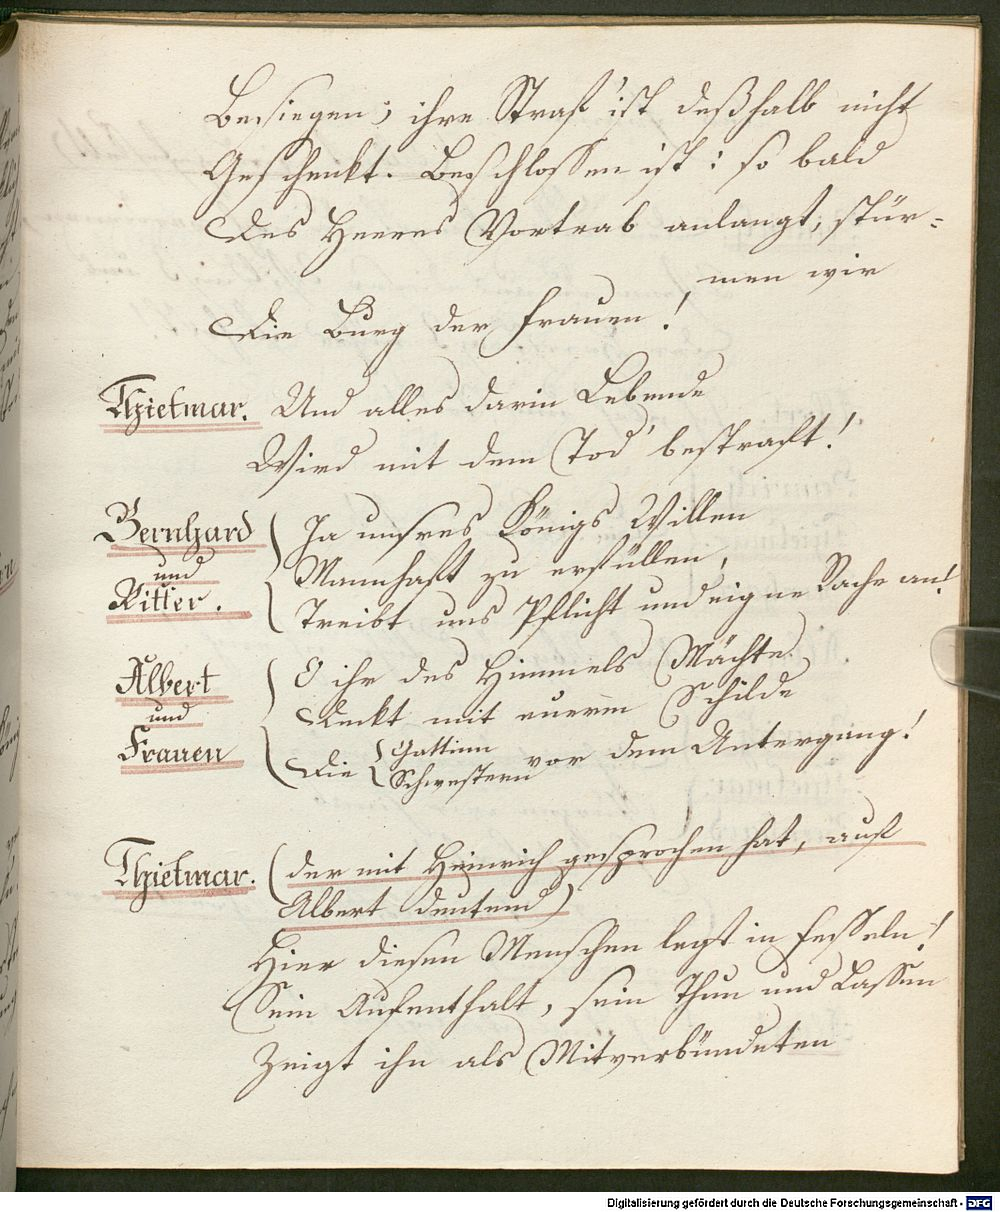 Besiegen; ihre Straf' ist deßhalb nicht
Geschenkt. Beschlossen ist: so bald
Des Heeres Vortrab anlangt, stür-
men wir
Die Burg der Frauen!
Thietmar. Und alles darin Lebende
Wird mit dem Tod' bestraft!
Bernhard und Ritter. Ja unsres Königs Willen
Mannhaft zu erfüllen,
Treibt uns Pflicht und eigne Rache an!
Albert und Frauen O ihr des Himmels Mächte
Deckt mit euerm Schilde
Die Gattinn Schwestern vor dem Untergang!
Thietmar. (der mit Heinrich gesprochen hat, auf
Albert deutend)
Hier diesen Menschen legt in Fesseln!
Sein Aufenthalt, sein Thun und Lassen
Zeigt ihn als Mitverbündeten
Digitalisierung gefördert durch die Deutsche Forschungsgemeinschaft - DFG